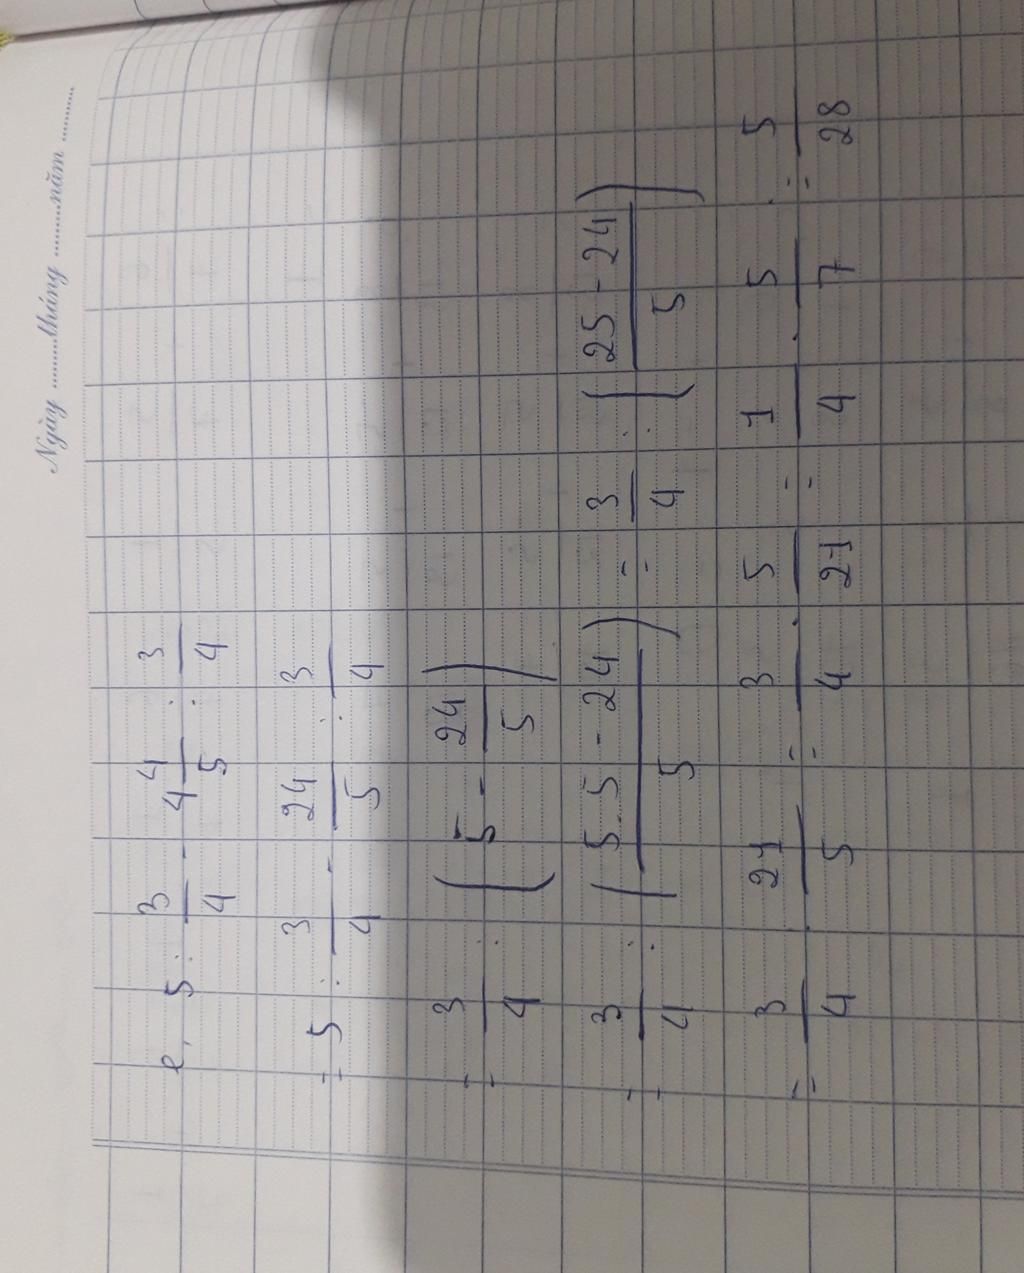 Ngày ........tháng ........năm ........
e, 5 : 3/4 - 4 4/5 : 3/4
= 5 : 3/4 - 24/5 : 3/4
= 3/4 : (5 - 24/5)
= 3/4 : (5.5 - 24/5) = 3/4 : (25 - 24/5)
= 3/4 : 21/5 = 3/4 . 5/21 = 1/4 . 5/7 = 5/28